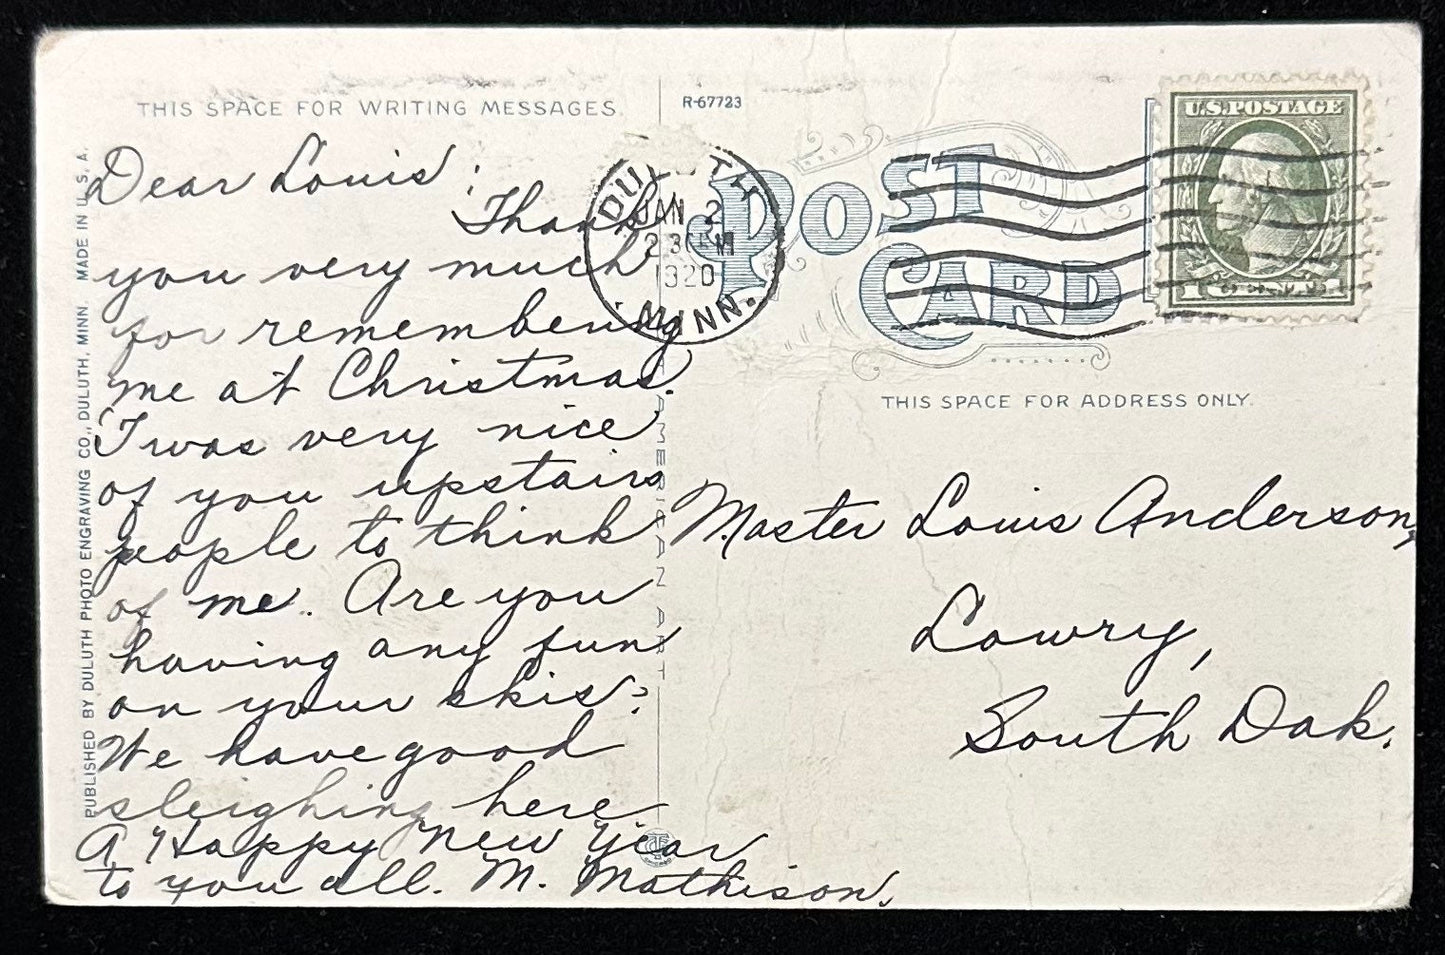 THIS SPACE FOR WRITING MESSAGES.
Dear Louis:
Thank
you very much
for remembering
me at Christmas.
'Twas very nice
of you upstairs
people to think
of me. Are you
having any fun
on your skis?
We have good
sleighing here
A Happy New Year
to you all. M. Mathison.
PUBLISHED BY DULUTH PHOTO ENGRAVING CO., DULUTH, MINN. MADE IN U.S.A.
AMERICAN ART
R-67723
DULUTH
JAN 2
230PM
1920
MINN.
POST
CARD
U.S. POSTAGE
1 CENT 1
THIS SPACE FOR ADDRESS ONLY.
Master Louis Anderson,
Lowry,
South Dak.